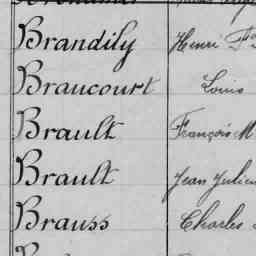 Brandily Henri F
Braucourt Louis
Brault François M
Brault Jean Julien
Brauss Charles